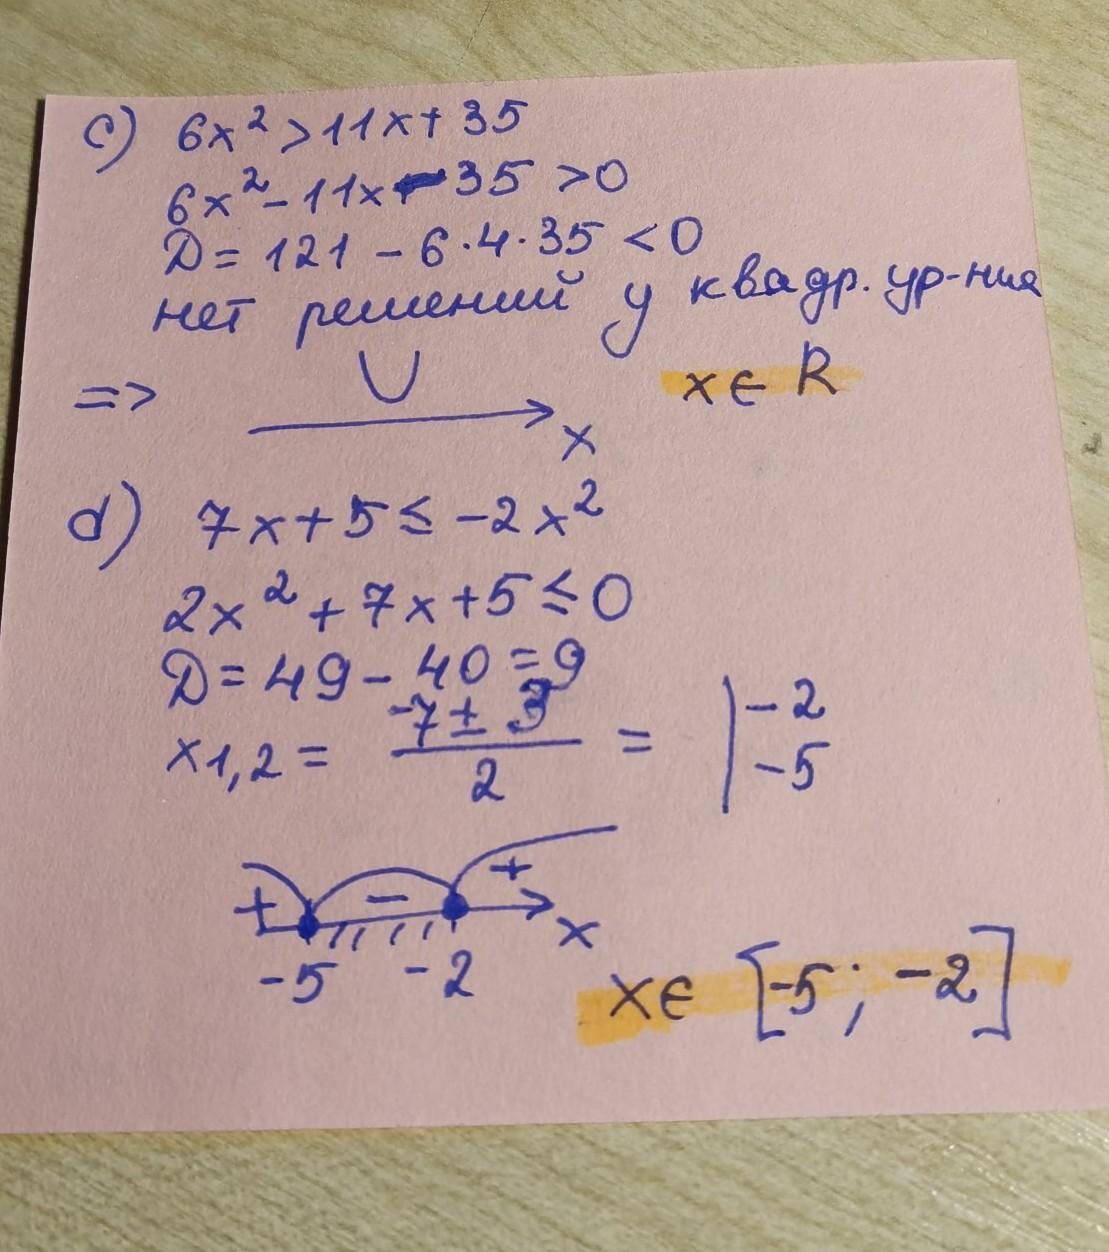 c) 6x² > 11x + 35
6x² - 11x - 35 > 0
D = 121 - 6·4·35 < 0
нет решений у квадр. ур-ния
=> x x ∈ R
d) 7x + 5 ≤ -2x²
2x² + 7x + 5 ≤ 0
D = 49 - 40 = 9
x1,2 = -7 ± 3 / 2 = | -2 -5
+ - + x
-5 -2
x ∈ [-5; -2]